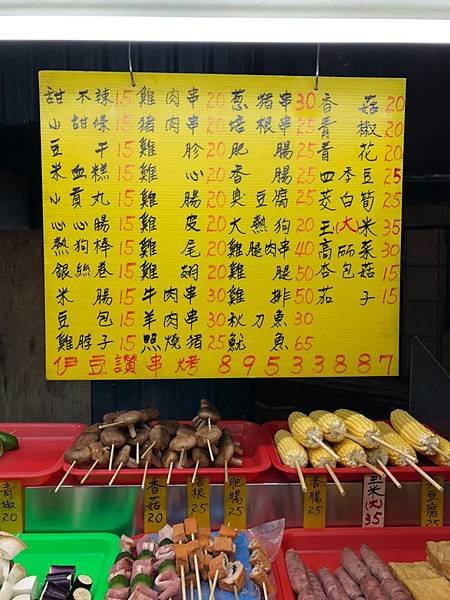 甜不辣15 雞肉串20 蔥豬串30 香菇20
小甜條15 豬肉串20 培根串25 青椒20
豆干15 雞胗20 肥腸25 青花20
米血糕15 雞心20 香腸25 四季豆25
小貢丸15 雞腸20 臭豆腐25 茭白筍25
心心腸15 雞皮20 大熱狗20 玉(大)米35
熱狗棒15 雞尾20 雞腿肉串40 高麗菜30
銀絲卷15 雞翅20 雞腿50 杏包菇15
米腸15 牛肉串30 雞排50 茄子15
豆包15 羊肉串30 秋刀魚30
雞脖子15 照燒豬25 魷魚65
伊豆讚串烤 89533887
青椒20
香菇20
培根
肥腸20
香腸
玉米(大)35
豆腐